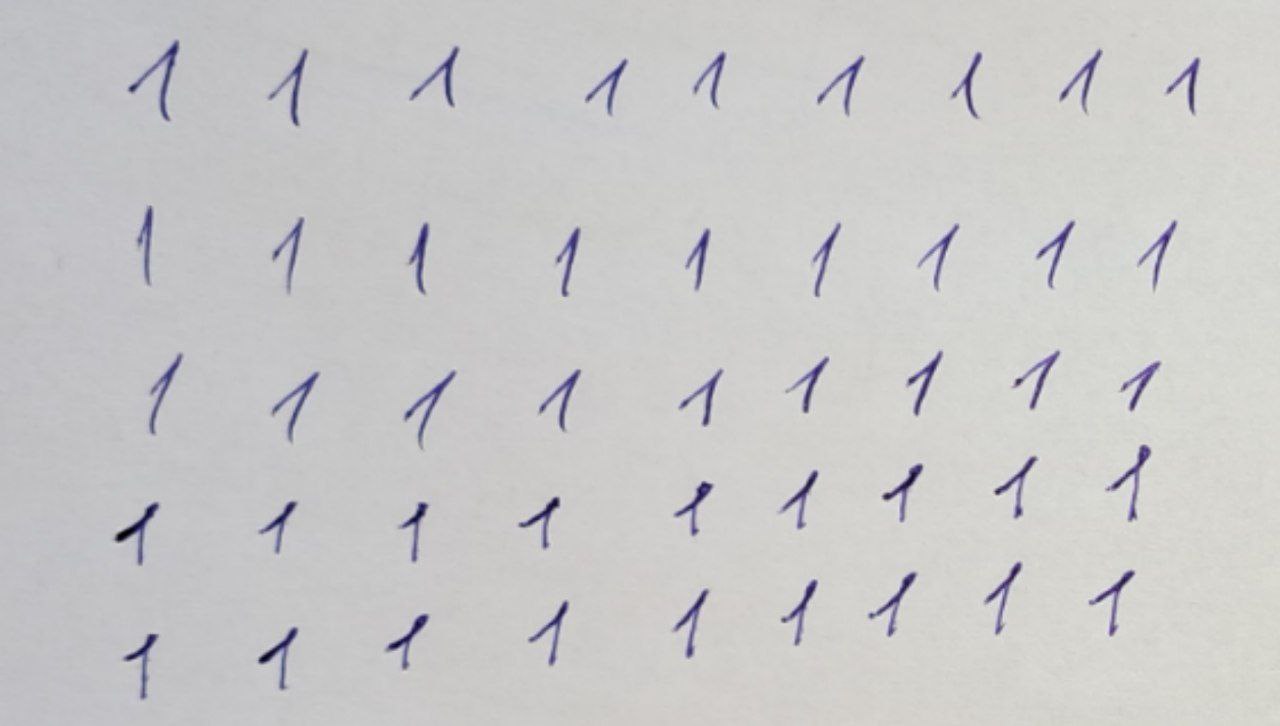 1 1 1 1 1 1 1 1 1
1 1 1 1 1 1 1 1 1
1 1 1 1 1 1 1 1 1
1 1 1 1 1 1 1 1 1
1 1 1 1 1 1 1 1 1